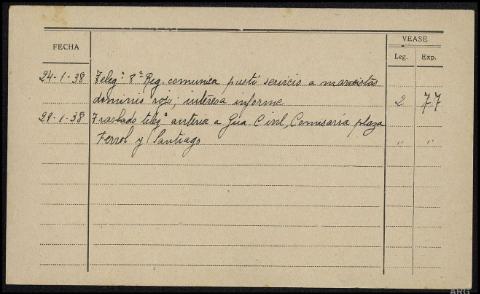 FECHA
VEASE
Leg. Exp.
24-1-38 Teleg.ª 8ª Reg. comunica prestó servicio a marxistas
dominio rojo; interesa informe 2 77
28-1-38 Traslado telegª anterior a Gua. Civil, Comisaría plaza " "
Ferrol y Santiago
ARG